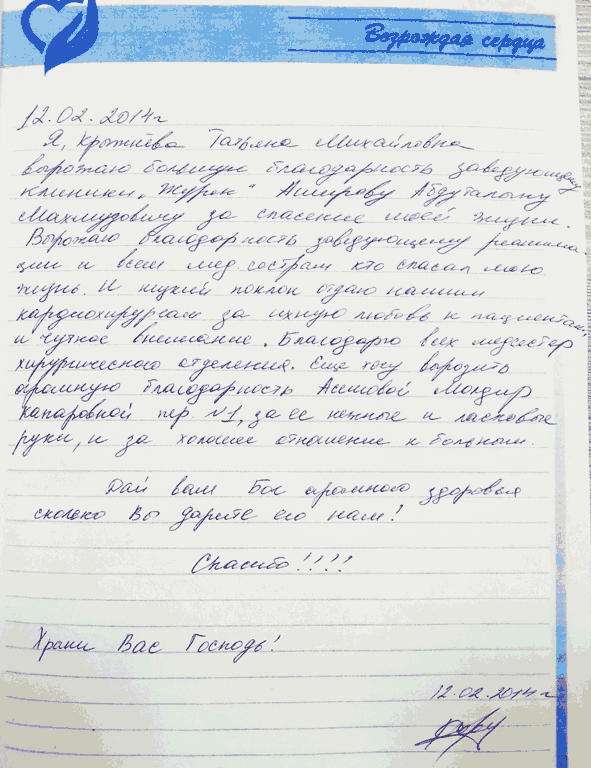 Возрождая сердца
12.02.2014г
Я, Крожнева Татьяна Михайловна
вырожаю большую благодарность заведующему
клиники „Жүрек" Амирову Абдуталыпу
Махмудовичу за спасение моей жизни.
Вырожаю благодарность заведующему реанима-
ции и всем мед. сострам кто спасал мою
жизнь. И ниский поклон отдаю нашим
кардиохирургам за ихную любовь к пациентам,
и чуткое внимание. Благодарю всех медсестер
хирургического отделения. Еще хочу вырозить
огромную благодарность Асемовой Молдир
Капаровной пер. N1, за ее нежные и ласковые
руки, и за хорошее отношение к больным.
Дай вам Бог огромного здоровья
сколько Вы дарите его нам!
Спасибо!!!!
Храни Вас Господь!
12.02.2014г